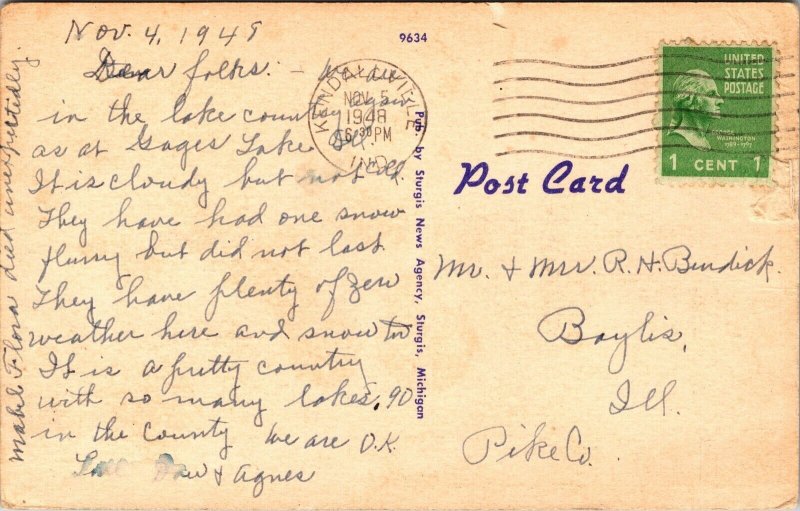 Nov. 4, 1948
Dear folks: - We are
in the lake country again
as at Gages Lake Ill.
It is cloudy but not cold
They have had one snow
flurry but did not last
They have plenty of zero
weather here and snow too
It is a pretty country
with so many lakes, 90
in the county We are O.K.
& Agnes
Mabel Flora died unexpectedly.
9634
Pub. by Sturgis News Agency, Sturgis, Michigan
KENDALLVILLE
NOV 5
1948
6:30 PM
IND.
UNITED
STATES
POSTAGE
GEORGE
WASHINGTON
1789-1797
1 CENT 1
Post Card
Mr. & Mrs. R. H. Burdick.
Baylis,
Ill.
Pike Co.